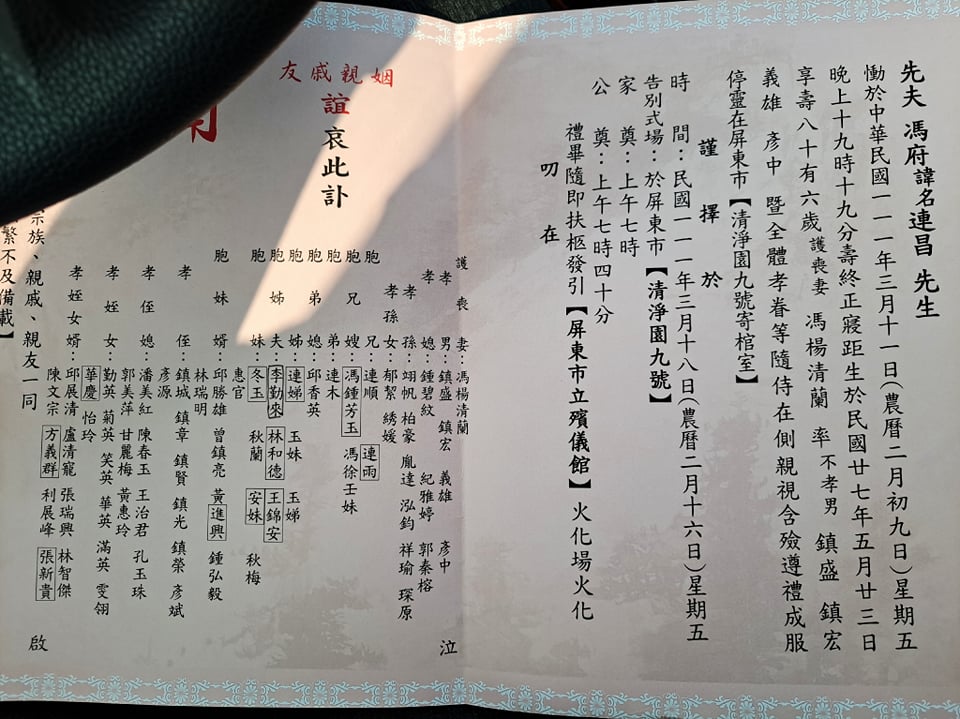 先夫 馮府諱名連昌 先生
慟於中華民國一一一年三月十一日(農曆二月初九日)星期五
晚上十九時十九分壽終正寢距生於民國廿七年五月廿三日
享壽八十有六歲 護喪妻 馮楊清蘭 率 不孝男 鎮盛 鎮宏
義雄 彥中 暨全體孝眷等隨侍在側親視含殮遵禮成服
停靈在屏東市【清淨園九號寄棺室】
謹擇於
時 間：民國一一一年三月十八日(農曆二月十六日)星期五
告別式場：於屏東市【清淨園九號】
家 奠：上午七時
公 奠：上午七時四十分
禮畢隨即扶柩發引【屏東市立殯儀館】火化場火化
叨在
姻親戚友
誼哀此訃
護喪妻：馮楊清蘭
孝男：鎮盛 鎮宏 義雄 彥中
泣
孝媳：鍾碧紋 紀雅婷 郭秦榕
孝孫：翊帆 柏豪 胤達 泓鈞 祥瑜 琛原
孝孫女：郁絜 綉媛
胞兄：連順 連雨
胞兄嫂：馮鍾芳玉 馮徐壬妹
胞弟：連木
胞弟媳：邱香英
胞姊：連娣 玉妹 玉娣
胞姊夫：李勤來 林和德 王錦安
胞妹：冬玉 秋蘭 安妹 秋梅
惠官
胞妹婿：邱勝雄 曾鎮亮 黃進興 鍾弘毅
林瑞明
孝侄：鎮城 鎮章 鎮賢 鎮光 鎮榮 彥斌
彥源
孝侄媳：潘美紅 陳春玉 王治君 孔玉珠
郭美萍 甘麗梅 黃惠玲
孝姪女：勤英 菊英 笑英 華英 滿英 雯翎
華慶 怡玲
孝姪女婿：邱展清 盧清寵 張瑞興 林智傑
陳文宗 方義群 利展峰 張新貴
宗族、親戚、親友一同
啟
繁不及備載】